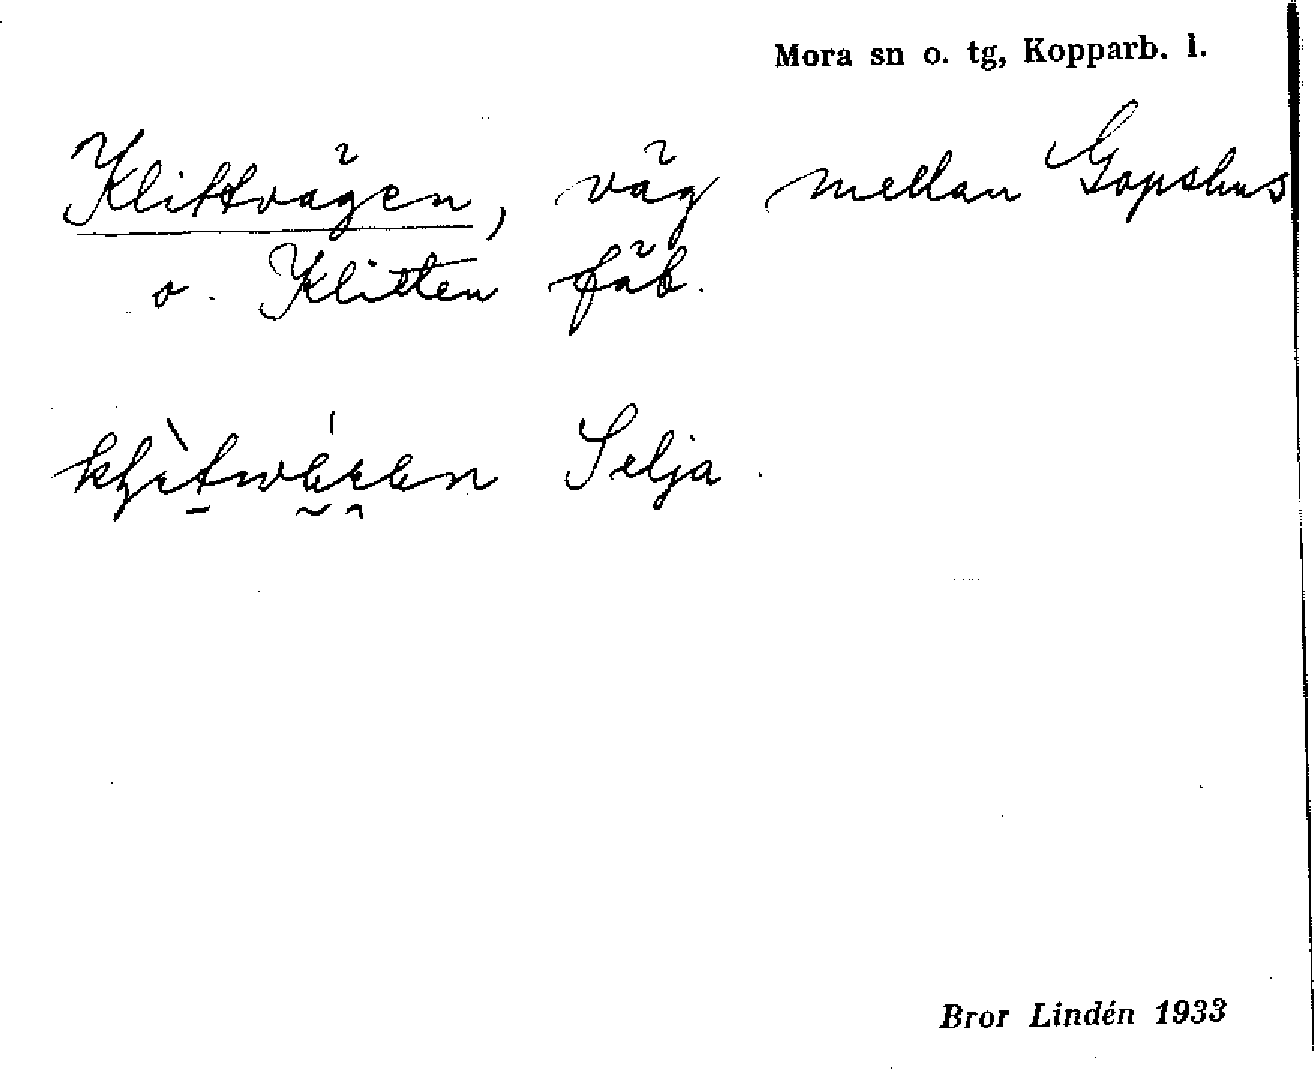 Mora sn o. tg, Kopparb. l.
Klittvägen, väg mellan Gopshus
o. Klitten fäb.
Selja.
Bror Lindén 1933